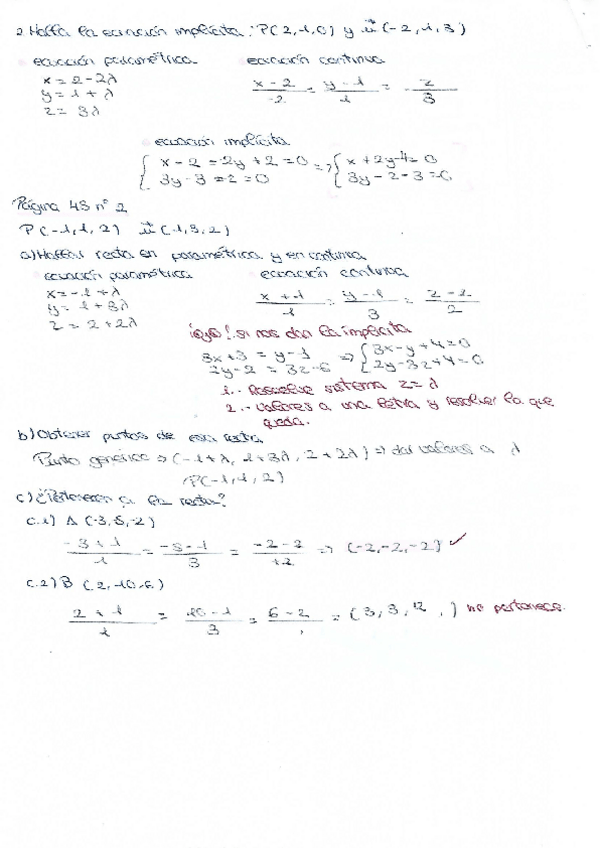 2. Halla la ecuación implícita: P(2,1,0) y u⃗(-2,1,3)
ecuación paramétrica ecuación continua
x = 2 - 2λ
y = 1 + λ
z = 3λ
x-2/-2 = y-1/1 = z/3
ecuación implícita
{ x - 2 = -2y + 2 = 0 => { x + 2y - 4 = 0
3y - 3 = z = 0 3y - z - 3 = 0
Página 45 nº 2
P(-1,1,2) u⃗(1,3,2)
a) Hallar recta en paramétrica y en continua
ecuación paramétrica ecuación continua
x = -1 + λ
y = 1 + 3λ
z = 2 + 2λ
x+1/1 = y-1/3 = z-2/2
¡ojo! si nos dan la implícita
3x + 3 = y - 1 => { 3x - y + 4 = 0
2y - 2 = 3z - 6 2y - 3z + 4 = 0
1.- Resuelve sistema z = λ
2.- valores a una letra y resolver la que
queda.
b) Obtener puntos de esa recta
Punto genérico => (-1+λ, 1+3λ, 2+2λ) => dar valores a λ
P(-1,1,2)
c) ¿Pertenecen a la recta?
c.1) A (-3,-5,-2)
-3+1/1 = -5-1/3 = -2-2/+2 => (-2,-2,-2) ✓
c.2) B (2,10,6)
2+1/1 = 10-1/3 = 6-2/ = (3, 3, ) no pertenece.